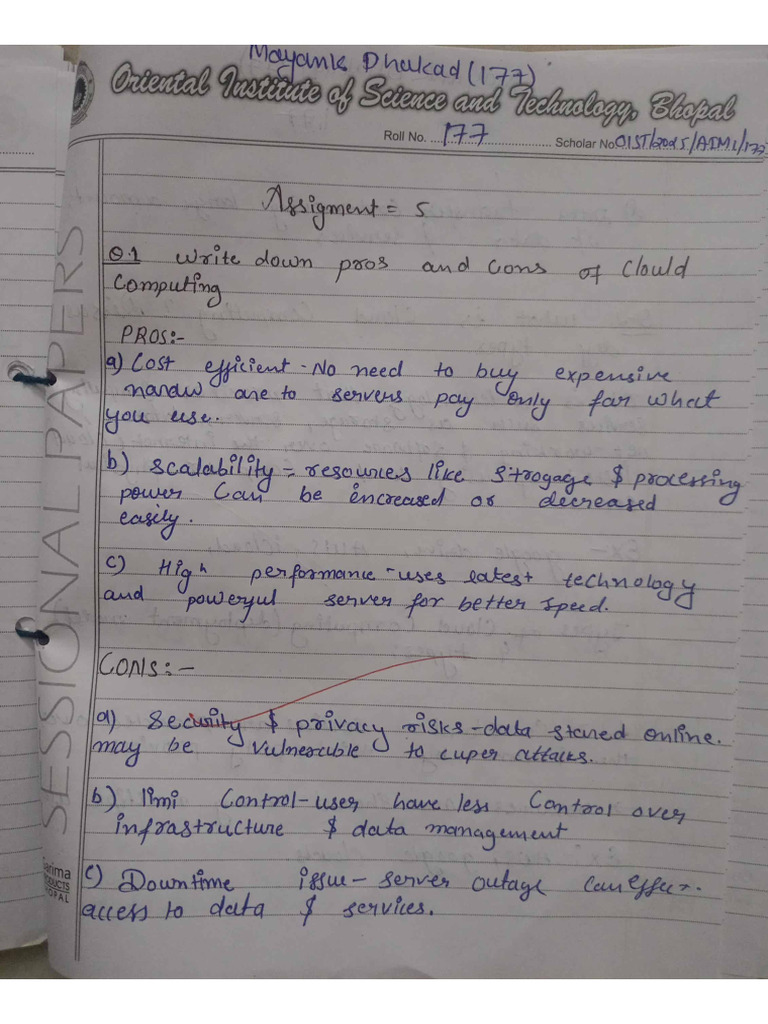 Mayank Dhakad (177)
Oriental Institute of Science and Technology, Bhopal
Roll No. 177 Scholar No. OIST/2025/AIML/177
Assigment = 5
Q.1 Write down pros and cons of Clould
Computing
PROS:-
a) Cost efficient - No need to buy expensive
to servers pay only for what
you use.
b) Scalability = resources like Strogage $ processing
power Can be increased or decreased
easily.
c) High performance - uses latest technology
and powerful server for better speed.
CONS:-
a) Security $ privacy risks - data stored online.
may be vulnerable to cuper attacks.
b) limi Control - user have less Control over
infrastructure $ data management
c) Downtime issue - server outage can
access to data $ services.
SESSIONAL PAPERS
arima
ODUCTS
OPAL